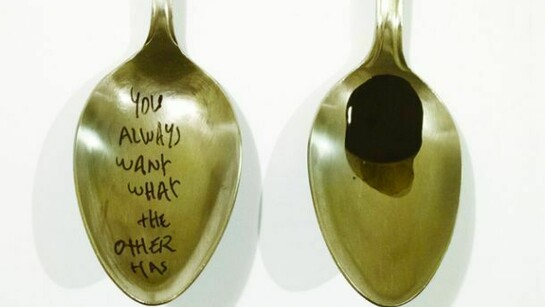 YOU
ALWAYS
WANT
WHAT
tHE
OTHER
HAS